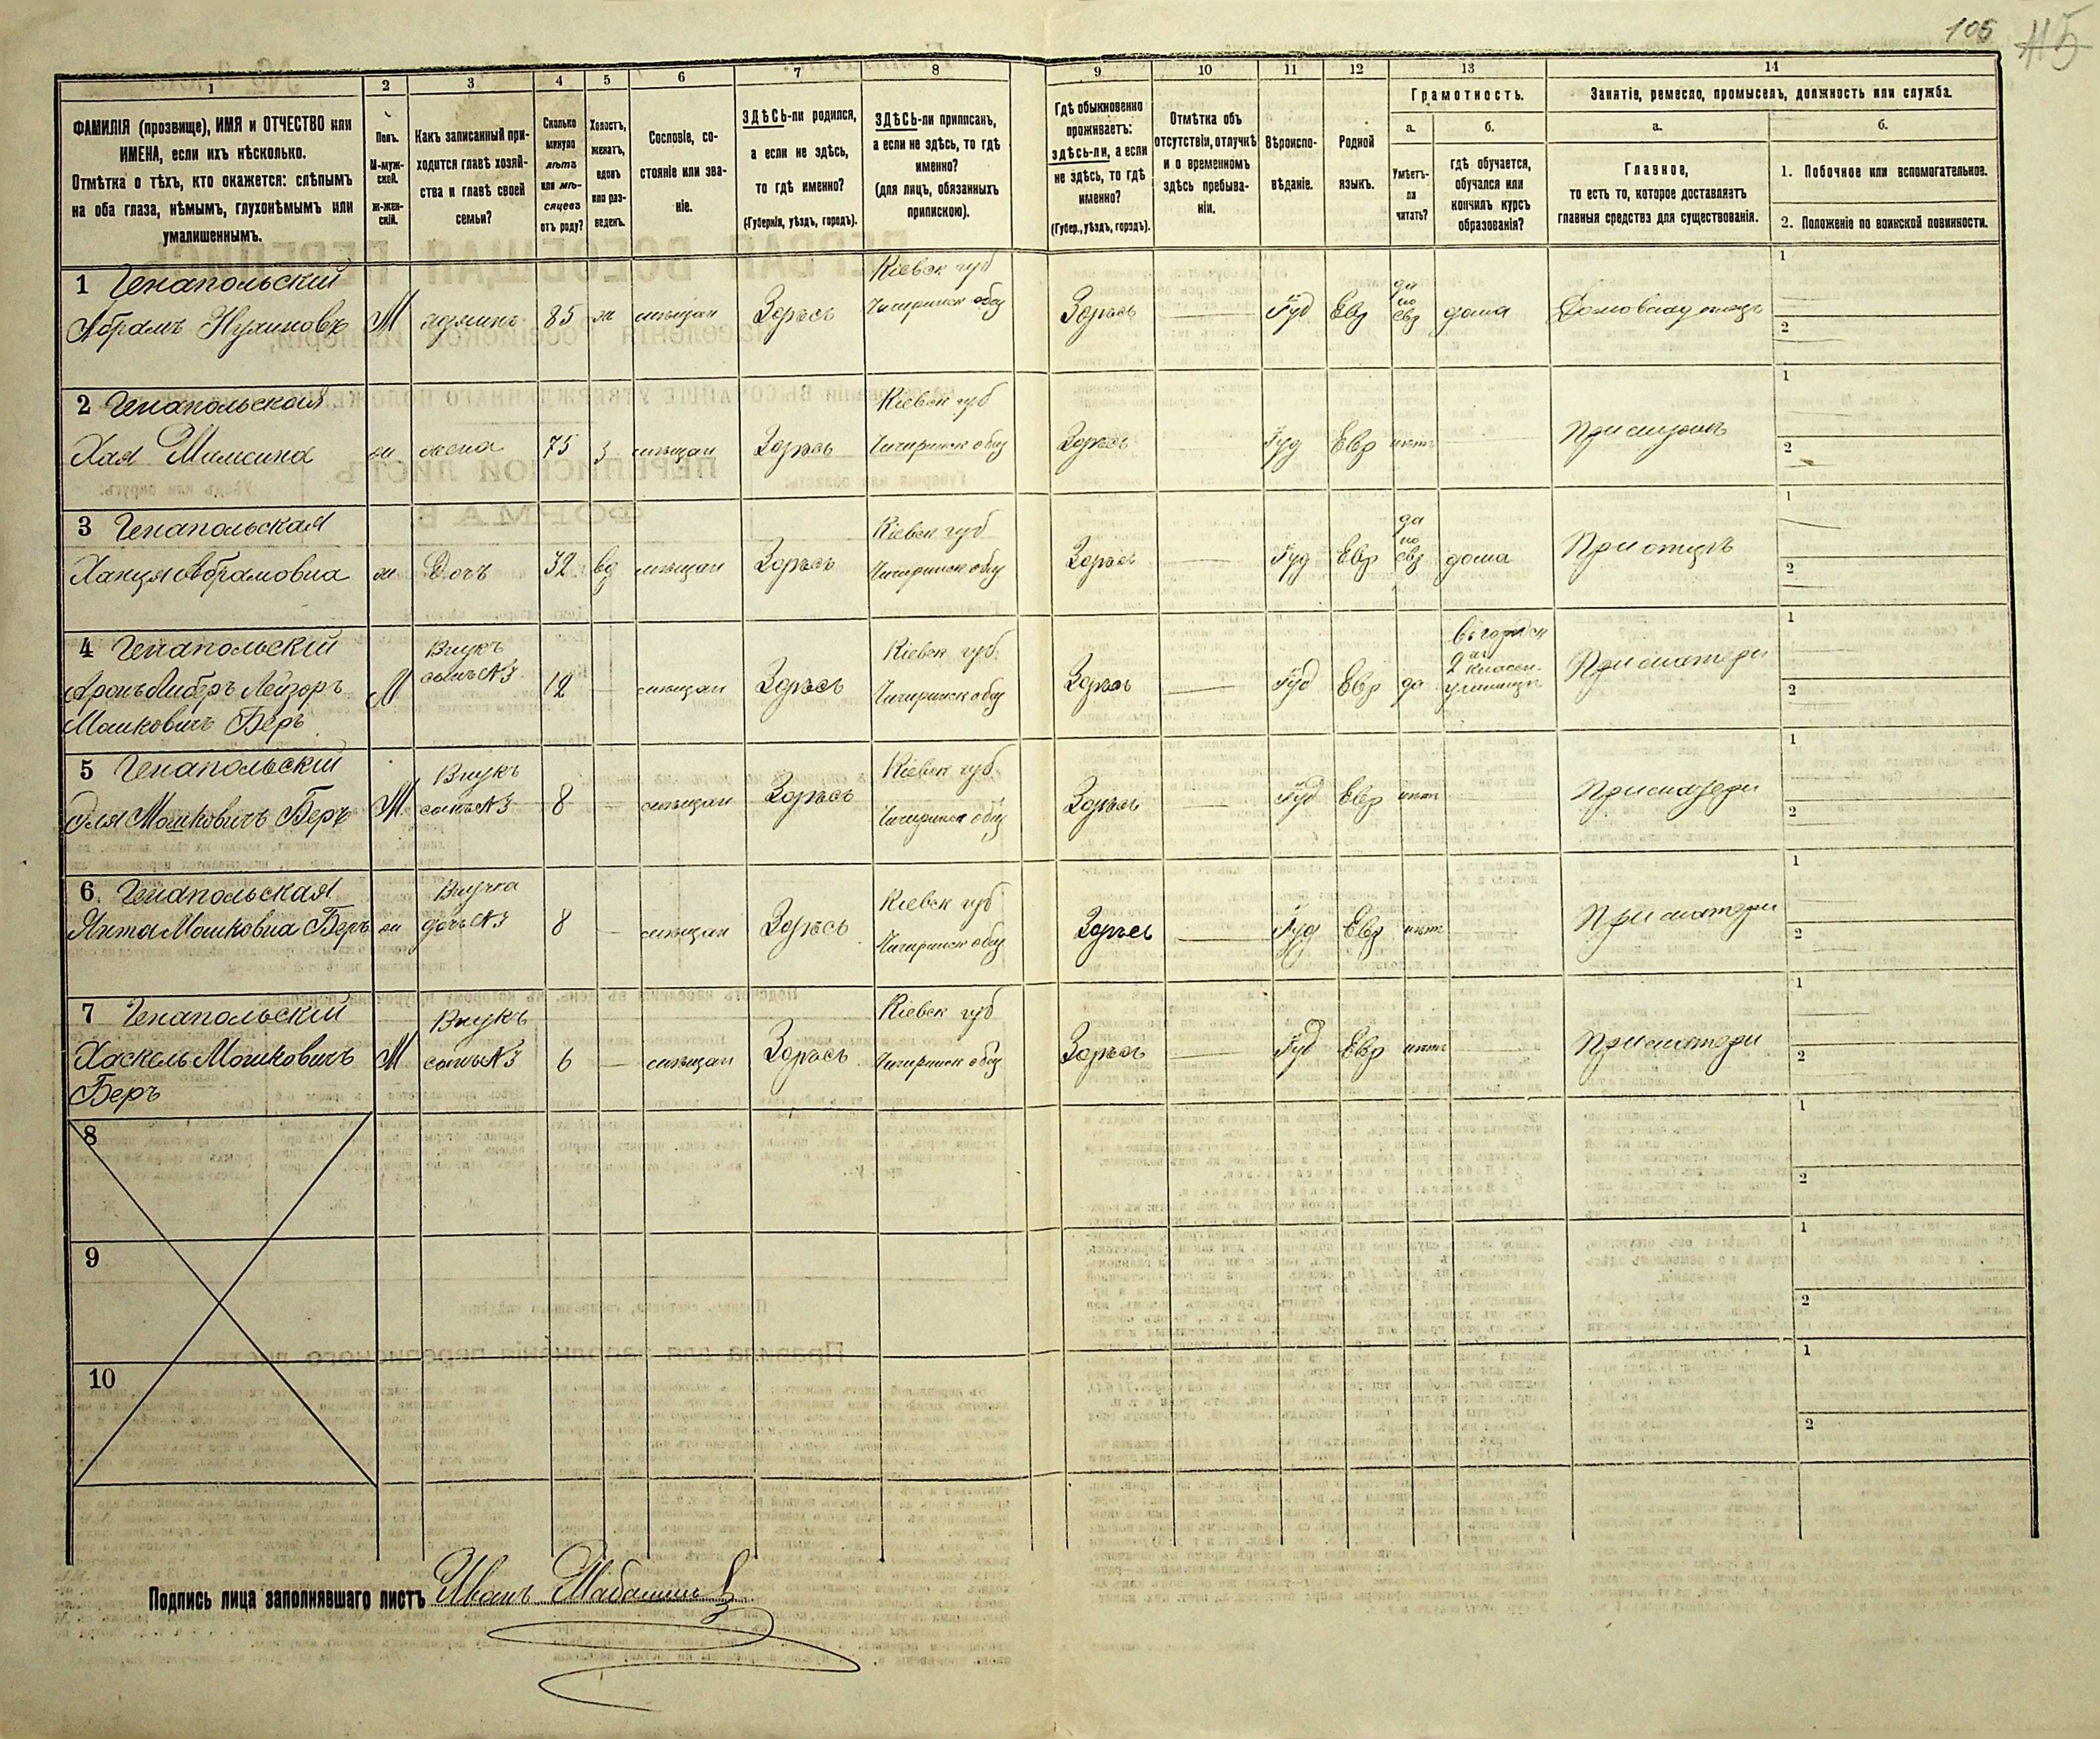 105 115
1 2 3 4 5 6 7 8 9 10 11 12 13 14
ФАМИЛІЯ (прозвище), ИМЯ и ОТЧЕСТВО или
ИМЕНА, если ихъ нѣсколько.
Отмѣтка о тѣхъ, кто окажется: слѣпымъ
на оба глаза, нѣмымъ, глухонѣмымъ или
умалишеннымъ.
Полъ.
М-муж-
ской.
Ж-жен-
скій.
Какъ записанный при-
ходится главѣ хозяй-
ства и главѣ своей
семьи?
Сколько
минуло
лѣтъ
или мѣ-
сяцевъ
отъ роду?
Холостъ,
женатъ,
вдовъ
или раз-
веденъ.
Сословіе, со-
стояніе или зва-
ніе.
ЗДѢСЬ-ли родился,
а если не здѣсь,
то гдѣ именно?
(Губернія, уѣздъ, городъ).
ЗДѢСЬ-ли приписанъ,
а если не здѣсь, то гдѣ
именно?
(для лицъ, обязанныхъ
припискою).
Гдѣ обыкновенно
проживаетъ:
здѣсь-ли, а если
не здѣсь, то гдѣ
именно?
(Губер., уѣздъ, городъ).
Отмѣтка объ
отсутствіи, отлучкѣ
и о временномъ
здѣсь пребыва-
ніи.
Вѣроиспо-
вѣданіе.
Родной
языкъ.
Грамотность.
а.
Умѣетъ-
ли
читать?
б.
гдѣ обучается,
обучался или
кончилъ курсъ
образованія?
Занятіе, ремесло, промыселъ, должность или служба.
а.
Главное,
то есть то, которое доставляетъ
главныя средства для существованія.
б.
1. Побочное или вспомогательное.
2. Положеніе по воинской повинности.
1 Генапольскій
Абрамъ Нухимовъ М 85 ж мѣщан Здѣсь
Кіевск губ
Чигиринск общ
Здѣсь Іуд Евр
да
по
евр
дома
1
2
2 Генапольская
Хая ж жена 75 з мѣщан Здѣсь
Кіевск губ
Чигиринск общ
Здѣсь Іуд Евр нѣтъ
При мужѣ
1
2
3 Генапольская
Ханця Абрамовна ж Дочь 32 вд мѣщан Здѣсь
Кіевск губ
Чигиринск общ
Здѣсь Іуд Евр
да
по
евр
дома
При отцѣ
1
2
4 Генапольскій
Аронъ Либеръ Лейзоръ
Мошковичъ Беръ
М
Внукъ
сынъ №3
12 — мѣщан Здѣсь
Кіевск губ.
Чигиринск общ
Здѣсь Іуд Евр да
въ городск
2 классн.
училищѣ
При матери
1
2
5 Генапольскій
Эля Мошковичъ Беръ М
Внукъ
сынъ №3
8 — мѣщан Здѣсь
Кіевск губ.
Чигиринск общ
Здѣсь Іуд Евр нѣтъ
При матери
1
2
6. Генапольская
Янта Мошковна Беръ ж
Внучка
дочь №3
8 — мѣщан Здѣсь
Кіевск губ
Чигиринск общ
Здѣсь Іуд Евр нѣтъ
При матери
1
2
7 Генапольскій
Хаскель Мошковичъ
Беръ
М
Внукъ
сынъ №3
6 — мѣщан Здѣсь
Кіевск губ
Чигиринск общ
Здѣсь Іуд Евр нѣтъ
При матери
1
2
8
1
2
9
1
2
10
1
2
Подпись лица заполнявшаго листъ Иванъ